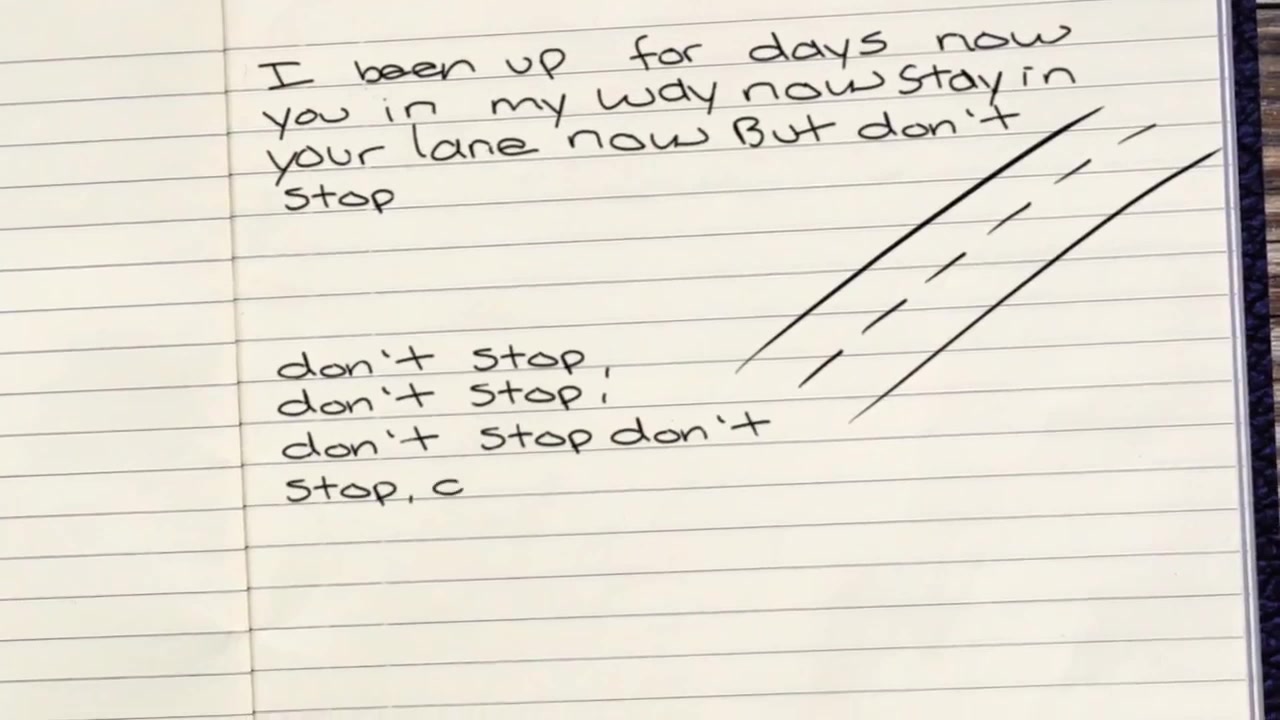 I been up for days now
you in my way now Stay in
your lane now But don't
stop
don't stop,
don't stop;
don't stop don't
stop, c